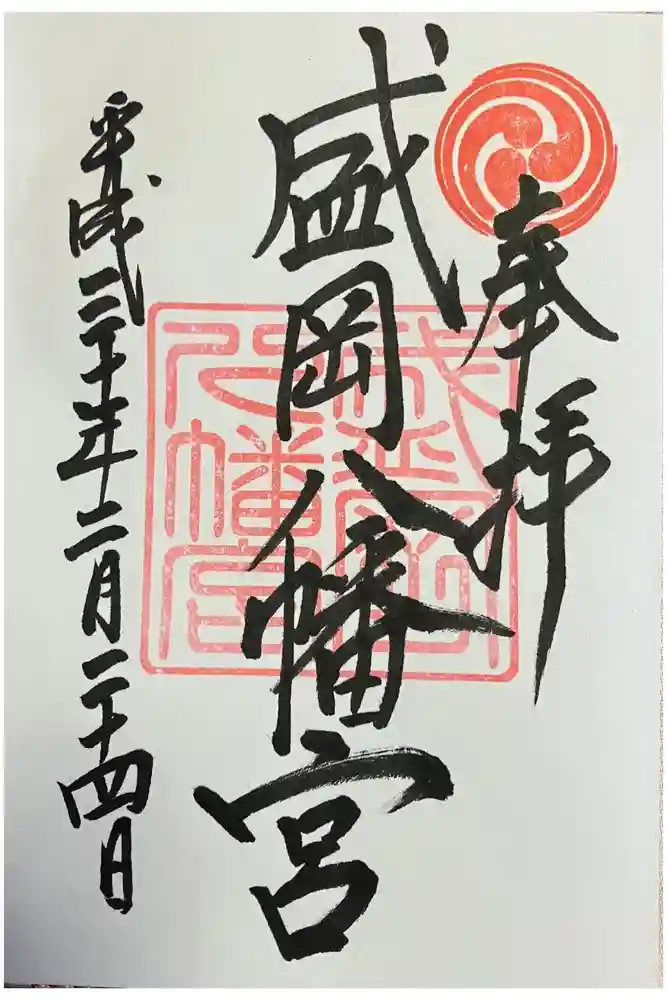 奉拝
盛岡八幡宮
平成三十年二月二十四日
盛岡
八幡宮